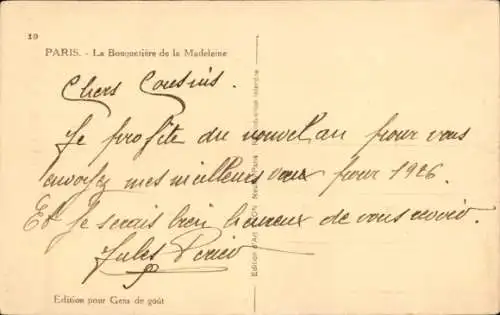 19
PARIS. - La Bouquetière de la Madeleine
Chers Cousins.
Je profite du nouvel an pour vous
envoyer mes meilleurs vœux pour 1926.
Et je serais bien heureux de vous revoir.
Jules
Edition pour Gens de goût
Edition d'Art Reproduction interdite